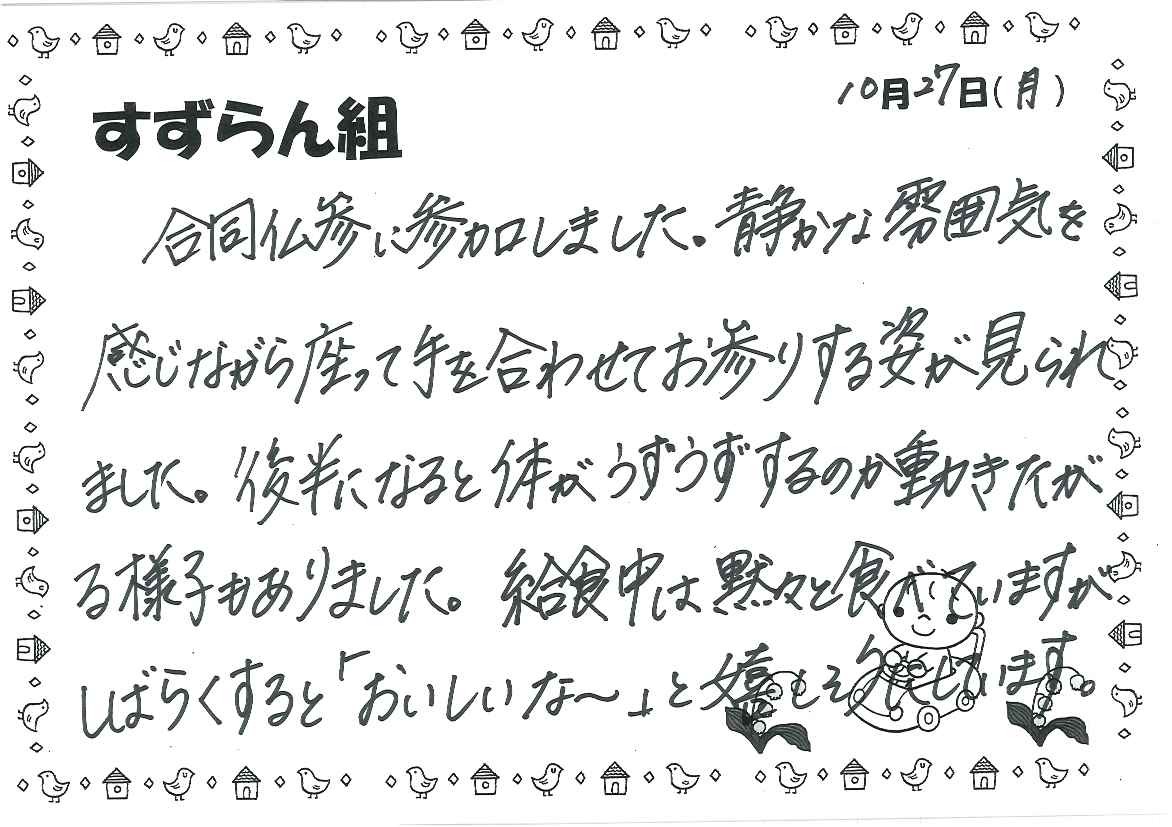 10月27日(月)
すずらん組
合同仏参に参加しました。静かな雰囲気を
感じながら座って手を合わせてお参りする姿が見られ
ました。後半になると体がうずうずするのか動きたが
る様子もありました。給食中は黙々と食べていますが
しばらくすると「おいしいな〜」と嬉しそうにしています。